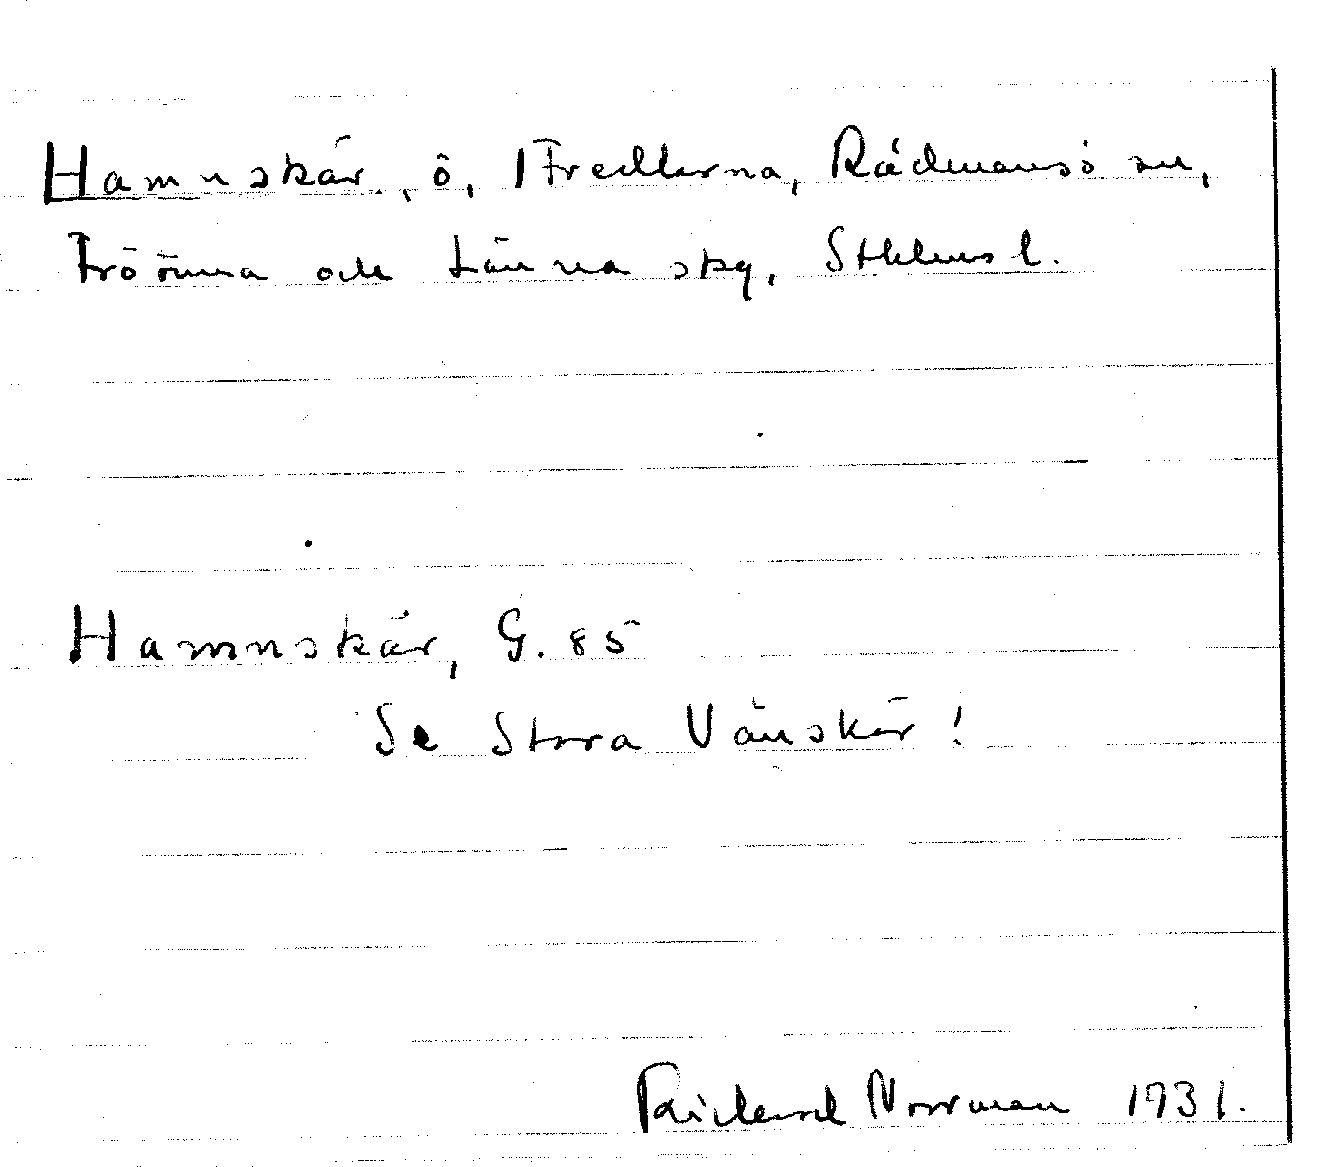 Hamnskär, ö, Fredlarna, Rådmansö sn,
Frötuna och Länna skg, Sthlms l.
Hamnskär, G. 85
Se Stora Vänskär!
Rickard Norrman 1931.